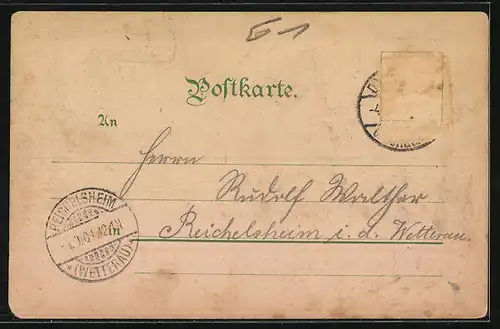 61
Postkarte.
An
Herrn
Rudolf Walther
in
Reichelsheim i. d. Wetterau.
REICHELSHEIM
* (WETTERAU)